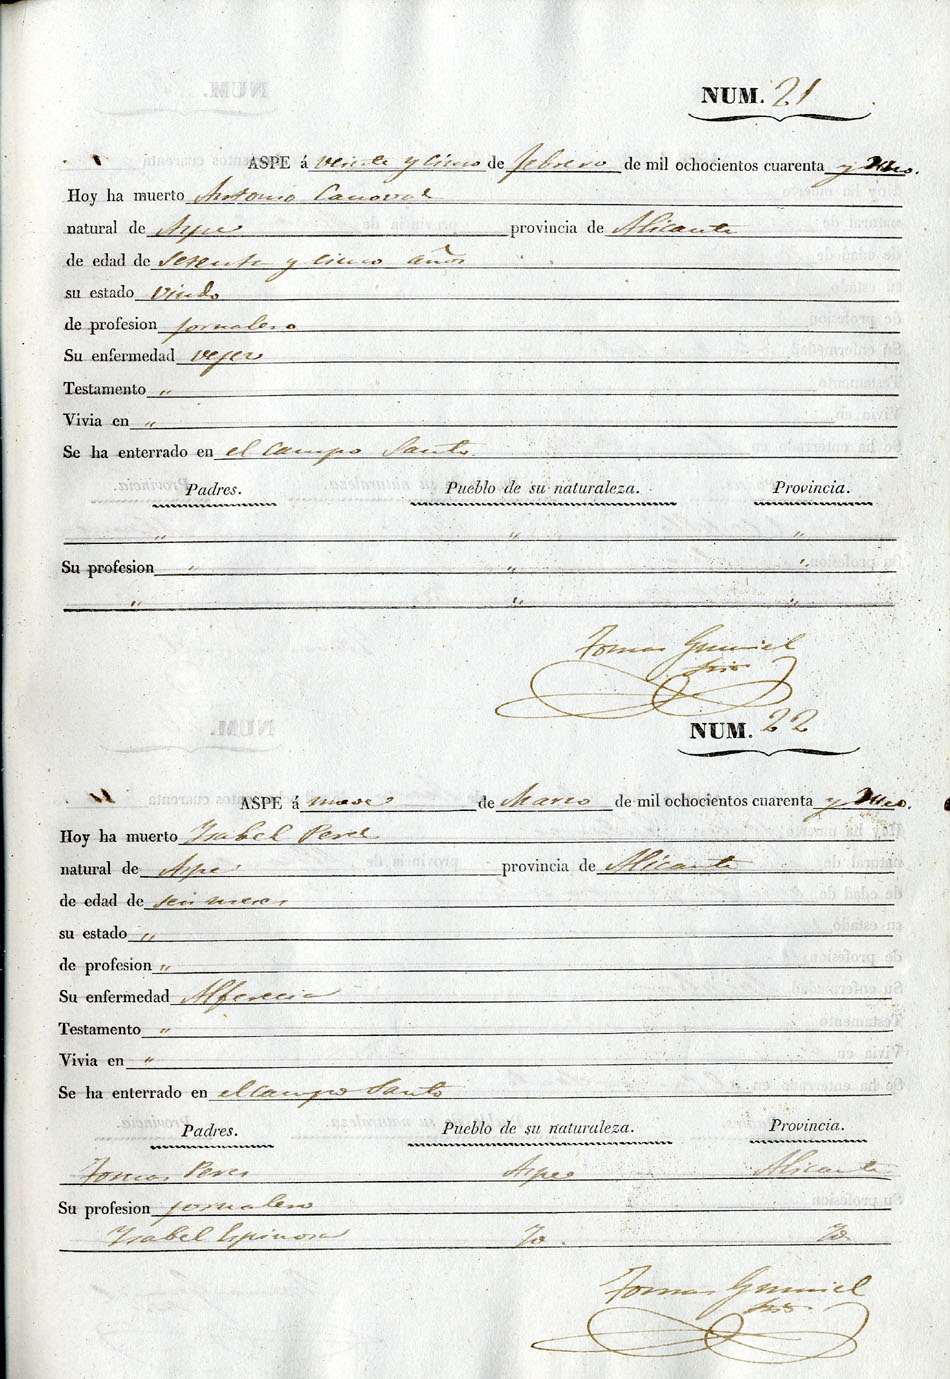 NUM. 21
ASPE á veinte y cinco de febrero de mil ochocientos cuarenta y uno.
Hoy ha muerto Antonio Canovas
natural de Aspe provincia de Alicante
de edad de setenta y cinco años
su estado viudo
de profesion jornalero
Su enfermedad vejez
Testamento "
Vivia en "
Se ha enterrado en el campo Santo.
Padres. Pueblo de su naturaleza. Provincia.
" " "
Su profesion " " "
" " "
Tomas
NUM. 22
ASPE á nueve de Marzo de mil ochocientos cuarenta y uno.
Hoy ha muerto Isabel Perez
natural de Aspe provincia de Alicante
de edad de seis meses
su estado "
de profesion "
Su enfermedad Alferecia
Testamento "
Vivia en "
Se ha enterrado en el campo Santo
Padres. Pueblo de su naturaleza. Provincia.
Tomas Perez Aspe Alicante
Su profesion jornalero
Isabel Espinosa Yd. Yd.
Tomas